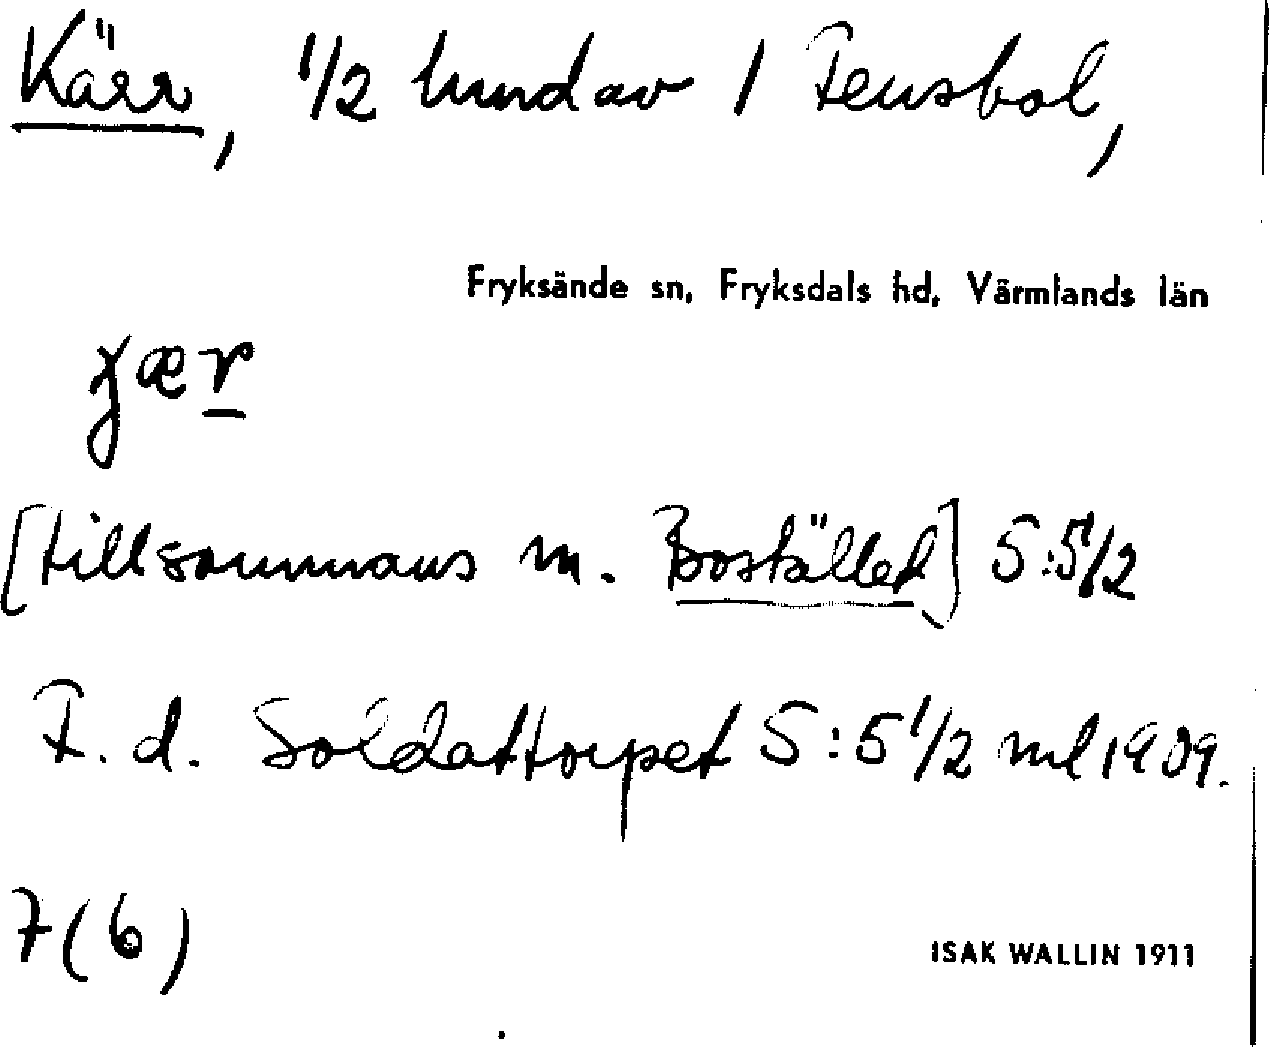 Kärr, 1/2 hmd av 1 Fensbol,
Fryksände sn, Fryksdals hd, Värmlands län
χær
[tillsammans m. Bostället] 5:5 1/2
F.d. Soldattorpet 5:5 1/2 ml 1909.
7(6)
ISAK WALLIN 1911